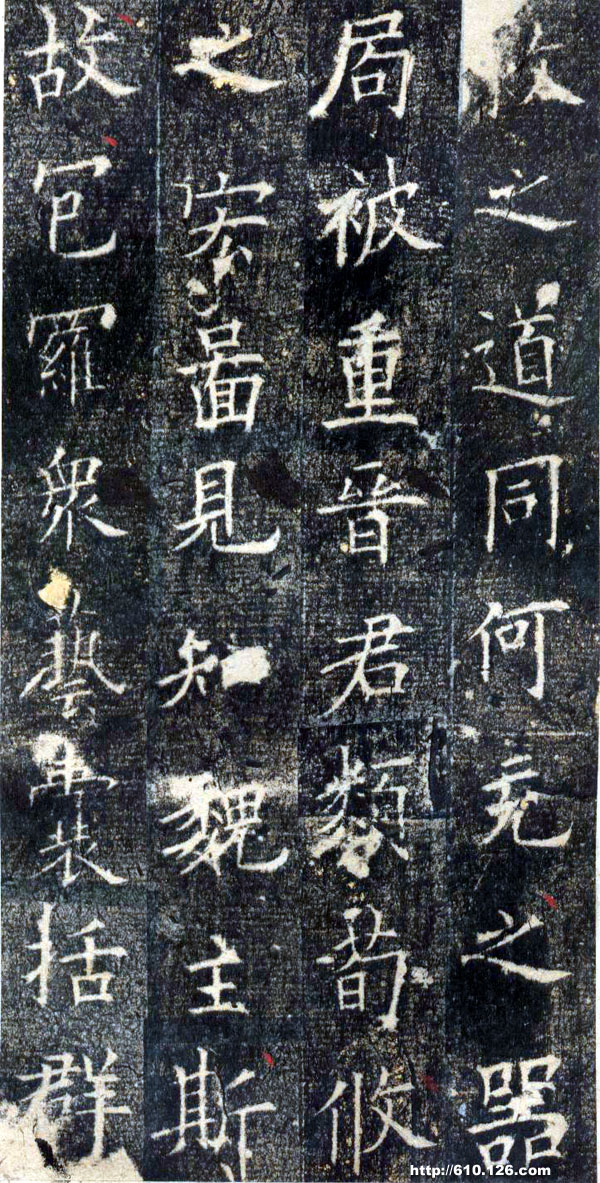 救之道同何充之器
局被重晉君類荀攸
之宏圖見知魏主斯
故包羅衆藝囊括群
http://610.126.com